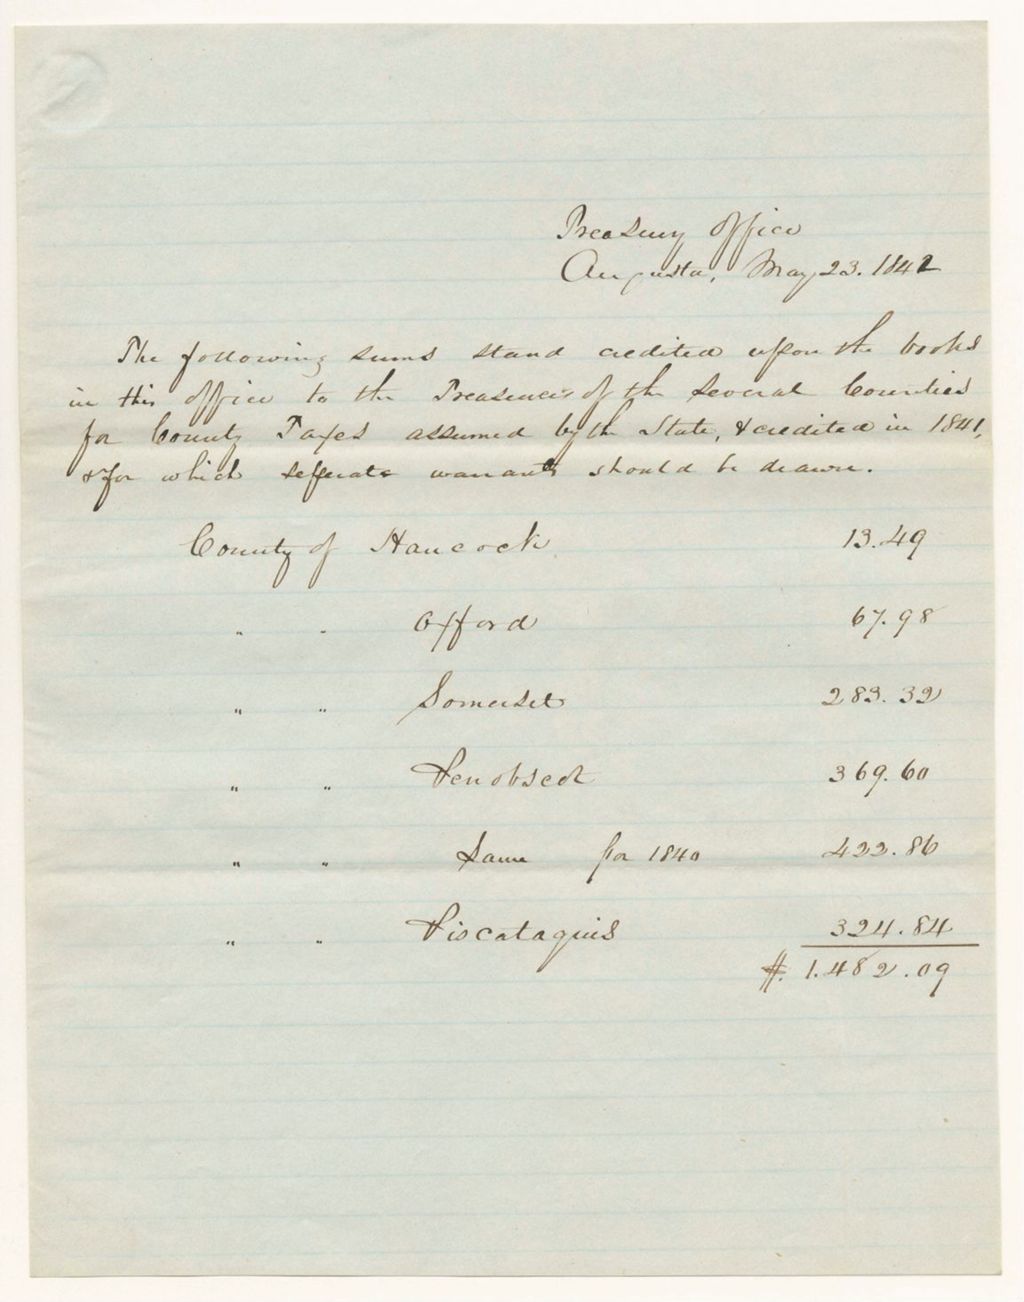 Treasury Office
Augusta, May 23. 1842
The following sums stand credited upon the books
in this office to the Treasurers of the several Counties
for County Taxes assumed by the State, & credited in 1841,
& for which seperate warrants should be drawn.
County of Hancock 13.49
" " Oxford 67.98
" " Somerset 283.32
" " Penobscot 369.60
" " Same for 1840 422.86
" " Piscataquis 324.84
$. 1.482.09